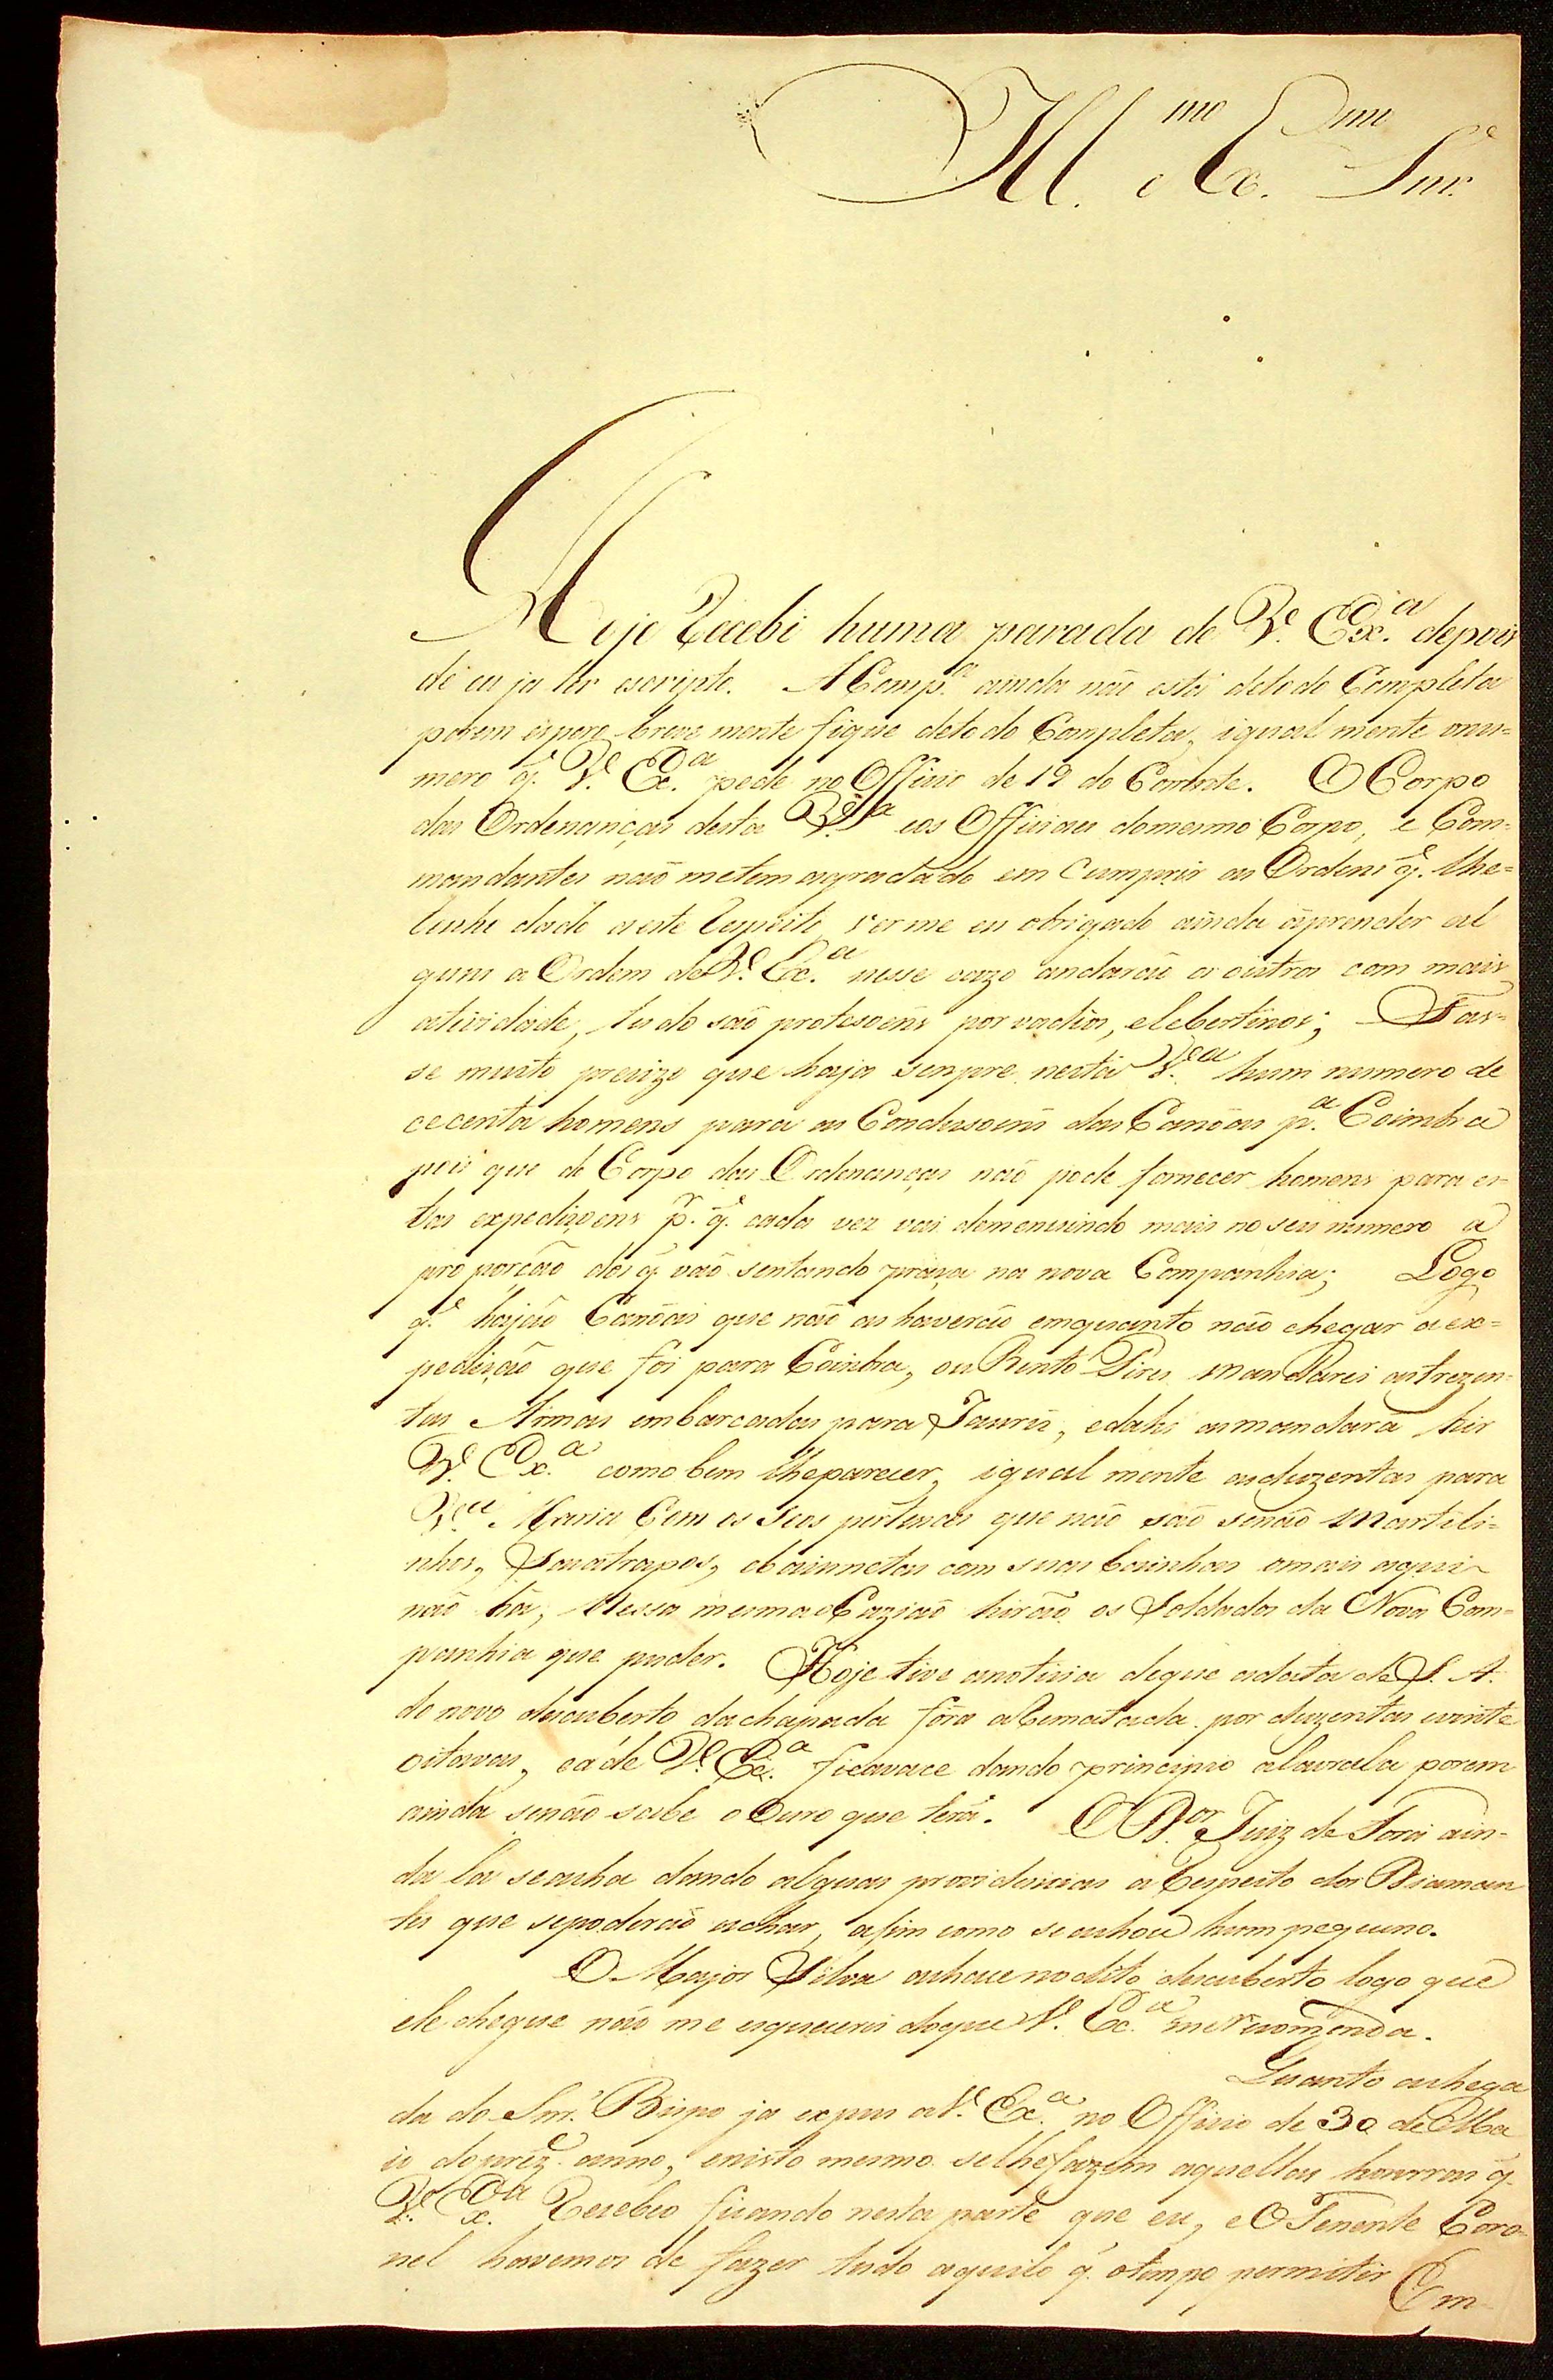 Ill.mo e Ex.mo Snr.
Hoje Recebi huma parada de V.e Ex.a depois
de eu ja ter escripto. A Comp.a ainda não está detodo Completa
porem espero breve mente fique detodo Completa, igual mente onu=
mero q.e V.e Ex.a pede no Officio de 19 do Corrente. O Corpo
das Ordenanças desta V.a eos Officiaes domesmo Corpo, e Com=
mandantes não metem agradado em Cumprir as Ordens q.e lhe=
tenho dado aeste Respeito, verme eu obrigado ainda aprender al
guns a Ordem de V.e Ex.a nesse cazo andarão os outros com mais
atividade, tudo são protesoens por vadios, elebertinos; Fas=
se muito precizo que haja senpre nesta V.a hum numero de
cecenta homens para as Condusoens das Canoas p.a Coimbra
pois que do Corpo das Ordenanças não pode fornecer homens para es=
tas expediçoens p.r q.e cada vez vai demenuindo mais no seu numero a
proporção dos q vão sentando praça na nova Companhia; Logo
q.e hajão Canoas que não as haverão emquanto não chegar aex=
pedição que foi para Coimbra, ou Bento Pires mandarei astrezen=
tas Armas embarcadas para Jaurú, edahi asmandara hir
V.e Ex.a como bem lheparecer, igual mente asduzentas para
V.a Maria Com os Seos pertences que não são senão Marteli=
nhos, Sacatrapos, ebaiunetas com suas bainhas omais aqui
não há, Nessa mesma Cazião hirão os Soldados da Nova Com=
panhia que puder. Hoje tive anoticia deque adata de S. A.
do novo descuberto dachapada fora aRematada por duzentas evinte
oitavas, eade V.e Ex.a ficavace dando principio alavrala porem
ainda senão sabe o Ouro que terá. O D.or Juiz de Fora ain=
da la seacha dando alguas providencias a Respeito dos Diaman
tes que sepoderão achar, asim como seachou hum pequeno.
O Major Silva achace nodito descuberto logo que
ele chegue não me esquecerei doque V.e Ex.a me Recomenda.
Quanto achega
da do Snr. Bispo ja expus aV.e Ex.a no Officio de 30 de Ma
io doprez.e anno, enisto mesmo selhefazem aquellas honrras q.
V.e Ex.a Recebeo ficando nesta parte que eu, eO Tenente Coro=
nel havemos de fazer tudo aquilo q. otempo permitir Em